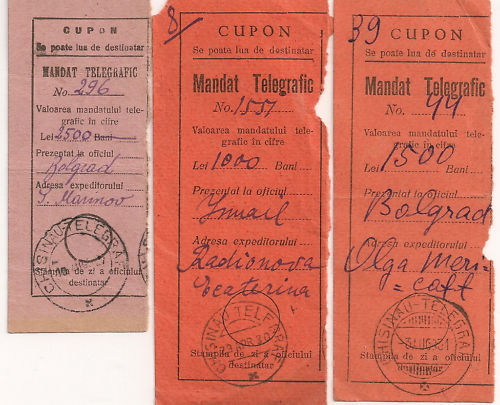 CUPON
Se poate lua de destinatar
MANDAT TELEGRAFIC
No. 296
Valoarea mandatului tele-
grafic în cifre
Lei 2500 Bani
Prezentat la oficiul
Bolgrad
Adresa expeditorului
I. Marinov
CHISINAU-TELEGRAF
Stampila de zi a oficiului
destinatar
8/
CUPON
Se poate lua de destinatar
Mandat Telegrafic
No. 1557
Valoarea mandatului tele-
grafic în cifre
Lei 1000 Bani
Prezentat la oficiul
Ismail
Adresa expeditorului
Radionova
Ecaterina
CHISINAU-TELEGRAF
Stampila de zi a oficiului
destinatar
39
CUPON
Se poate lua de destinatar
Mandat Telegrafic
No. 44
Valoarea mandatului tele-
grafic în cifre
Lei 1500 Bani
Prezentat la oficiul
Bolgrad
Adresa expeditorului
Olga Meri-
CHISINAU-TELEGRAF
Stampila de zi a oficiului
destinatar